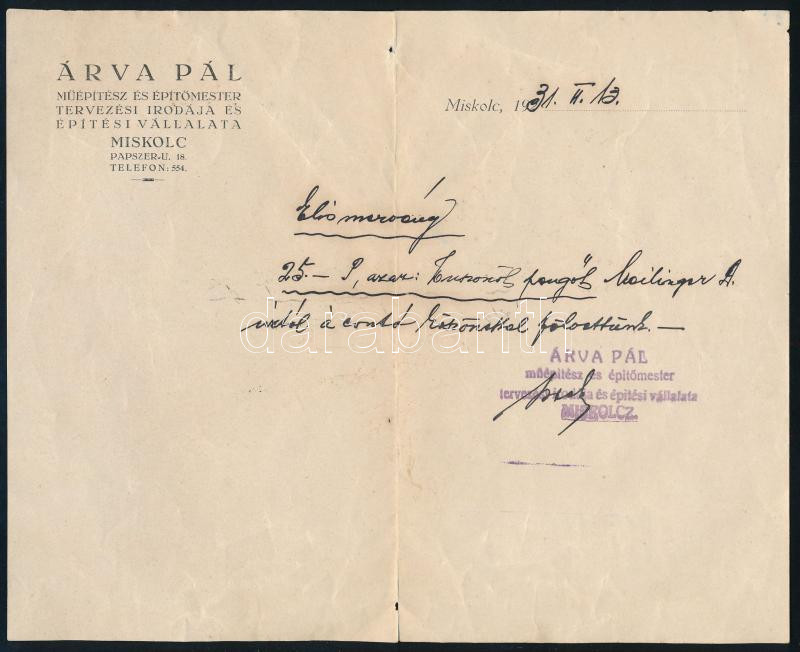 ÁRVA PÁL
MŰÉPÍTÉSZ ÉS ÉPÍTŐMESTER
TERVEZÉSI IRODÁJA ÉS
ÉPÍTÉSI VÁLLALATA
MISKOLC
PAPSZER-U. 18.
TELEFON: 554.
Miskolc, 1931. II. 13.
Elismervény
25.— P, azaz: Huszonöt pengőt Meilinger A.
úrtól, á contó köszönettel fölvettünk. —
darabanth
ÁRVA PÁL
műépítész és építőmester
tervezési irodája és építési vállalata
MISKOLCZ.